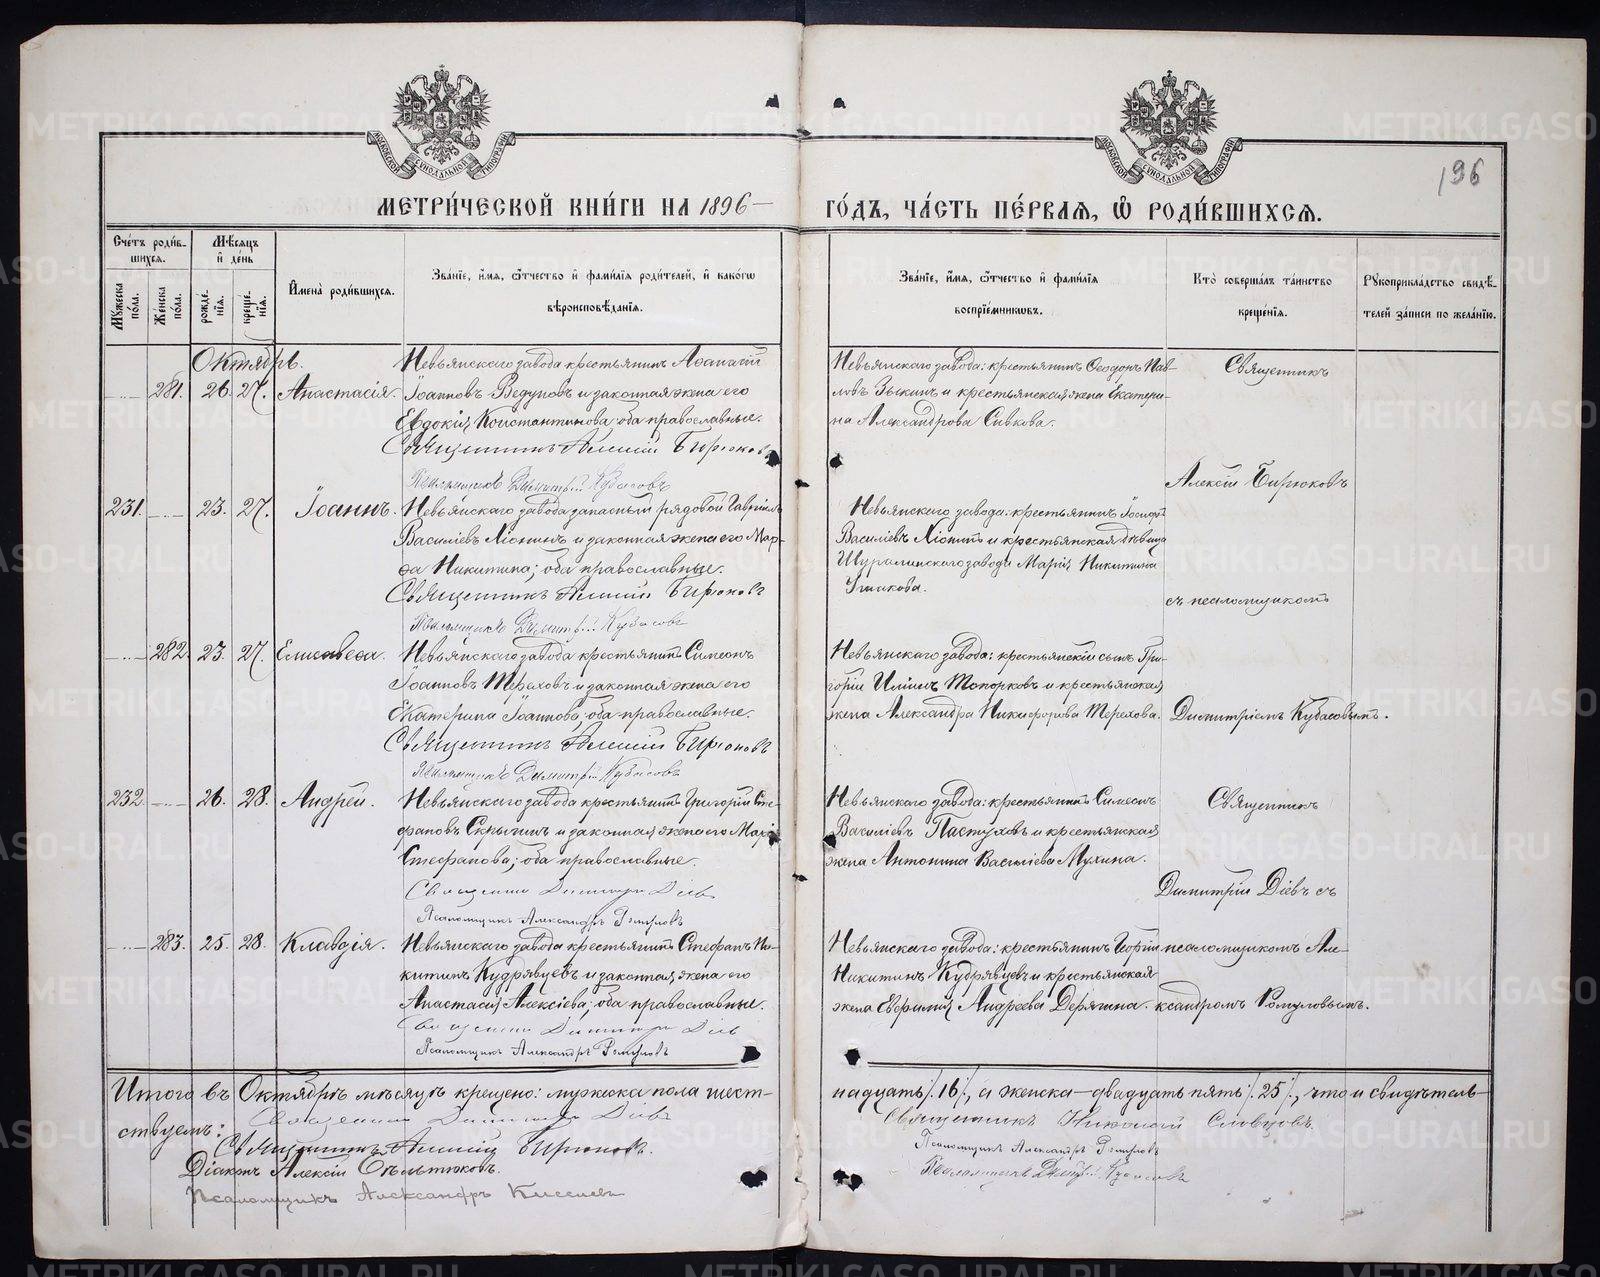 196
МЕТРИ́ЧЕСКОЙ КНИ́ГИ НА 1896 ГО́ДЪ, ЧА́СТЬ ПЕ́РВАЯ, Ѡ҆ РОДИ́ВШИХСЯ.
Сче́тъ роди́в-
шихся.
Му́жеска по́ла.
Же́нска по́ла.
Мѣ́сяцъ
и҆ де́нь
рожде́-
нїя.
креще́-
нїя.
И҆мена̀ роди́вшихся.
Зва́нїе, и҆́мя, ѻ҆́тчество и҆ фами́лїя роди́телей, и҆ како́гѡ
вѣроисповѣ́данїя.
Зва́нїе, и҆́мя, ѻ҆́тчество и҆ фами́лїя
воспрїе́мникѡвъ.
Кто̀ соверша́лъ та́инство
креще́нїя.
Рꙋкоприкла́дство свидѣ́-
телей за́писи по жела́нїю.
Октябрь.
281. 26. 27. Анастасія.
Невьянскаго завода крестьянинъ Аѳанасій
Іоанновъ Ведуновъ и законная жена его
Евдокія Константинова оба православные.
Священникъ Алексій Бирюковъ
Псаломщикъ Димитрій Кубасовъ
Невьянскаго завода: крестьянинъ Ѳеодоръ Пав-
ловъ Зыкинъ и крестьянская жена Екатери-
на Александрова Сивкова.
Священникъ
Алексій Бирюковъ
231. 23. 27. Іоаннъ.
Невьянскаго завода запасный рядовой Гавріилъ
Василіевъ Ліонинъ и законная жена его Мар-
ѳа Никитина; оба православные.
Священникъ Алексій Бирюковъ
Псаломщикъ Димитрій Кубасовъ
Невьянскаго завода: крестьянинъ Іосифъ
Василіевъ Ліонинъ и крестьянская дѣвица
Шуралинскаго завода Марія Никитина
Ушакова.
съ псаломщикомъ
282. 23. 27. Елисавеѳа.
Невьянскаго завода крестьянинъ Симеонъ
Іоанновъ Тереховъ и законная жена его
Екатерина Іоаннова; оба православные.
Священникъ Алексій Бирюковъ
Псаломщикъ Димитрій Кубасовъ
Невьянскаго завода: крестьянскій сынъ Гри-
горій Ильинъ Топорковъ и крестьянская
жена Александра Никифорова Терехова.
Димитріемъ Кубасовымъ.
232. 26. 28. Андрей.
Невьянскаго завода крестьянинъ Григорій Сте-
фановъ Скрыгинъ и законная жена его Марія
Стефанова; оба православные.
Священникъ Димитрій Діевъ
Псаломщикъ Александръ Ромуловъ
Невьянскаго завода: крестьянинъ Симеонъ
Василіевъ Пастуховъ и крестьянская
жена Антонина Василіева Мухина.
Священникъ
Димитрій Діевъ съ
283. 25. 28. Клавдія.
Невьянскаго завода крестьянинъ Стефанъ Ни-
китинъ Кудрявцевъ и законная жена его
Анастасія Алексіева; оба православные.
Священникъ Димитрій Діевъ
Псаломщикъ Александръ Ромуловъ
Невьянскаго завода: крестьянинъ Георгій
Никитинъ Кудрявцевъ и крестьянская
жена Евфимія Андреева Дерягина.
псаломщикомъ Але-
ксандромъ Ромуловымъ.
Итого въ Октябрѣ мѣсяцѣ крещено: мужеска пола шест-
надцать /.16/., а женска — двадцать пять /.25/., что и свидѣтель-
ствуемъ: Священникъ Димитрій Діевъ
Священникъ Алексій Бирюковъ.
Діаконъ Алексій
Псаломщикъ Александръ
Священникъ Николай Словцовъ.
Псаломщикъ Александръ Ромуловъ
Псаломщикъ Димитрій Кубасовъ
METRIKI.GASO-URAL.RU